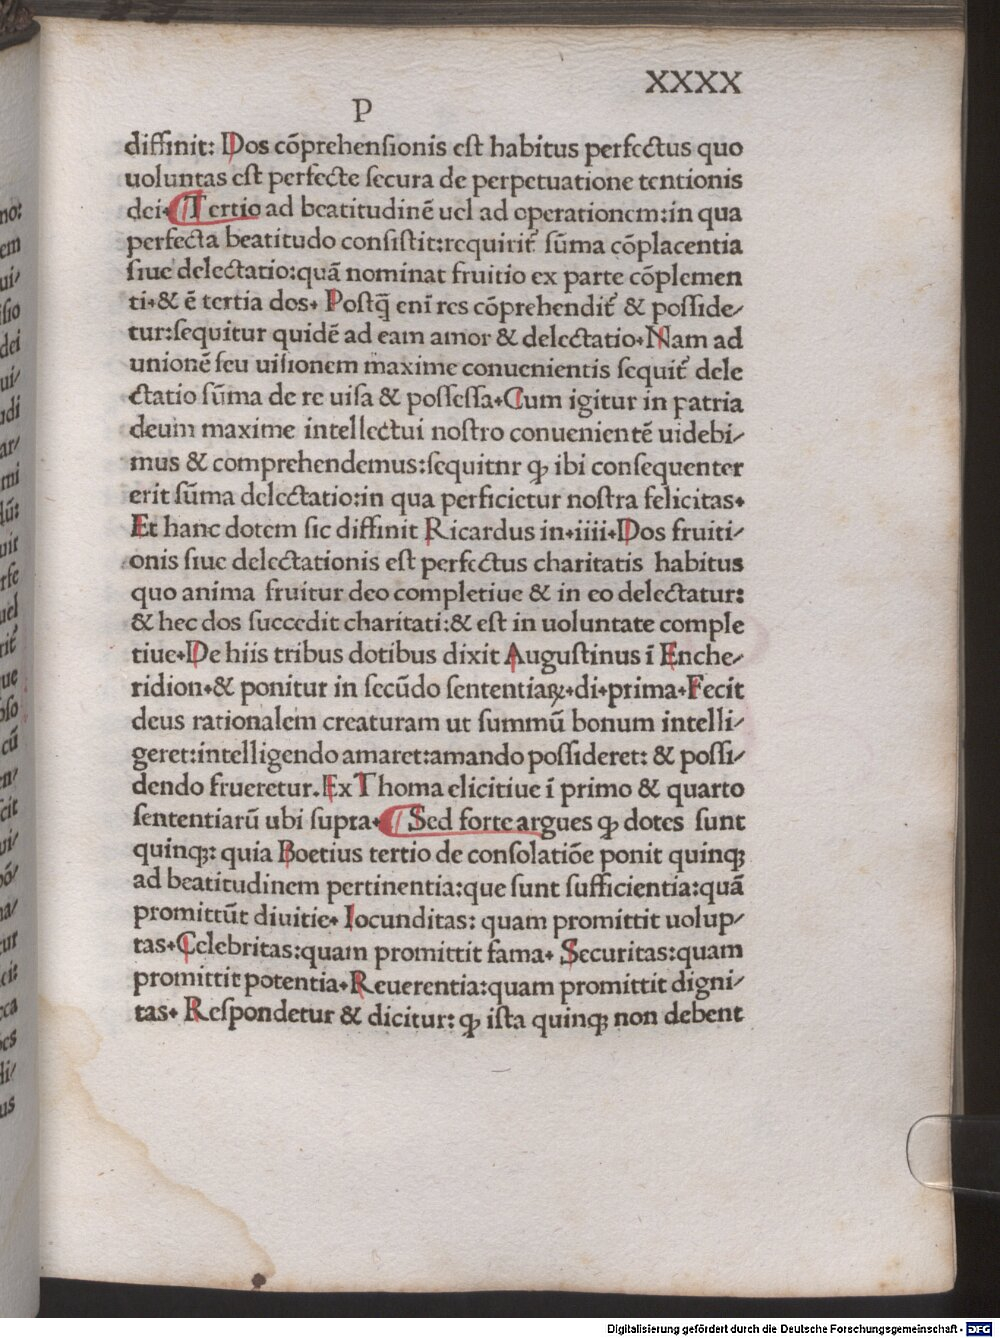 XXXX
P
diffinit: Dos cõprehensionis est habitus perfectus quo
uoluntas est perfecte secura de perpetuatione tentionis
dei. ¶ Tertio ad beatitudinē uel ad operationem:in qua
perfecta beatitudo consistit:requirit᷑ sũma cõplacentia
siue delectatio:quã nominat fruitio ex parte cõplemen
ti.& ē tertia dos. Postq̃ enī res cõprehendit᷑ & posside/
tur:sequitur quidē ad eam amor & delectatio.Nam ad
unionē seu uisionem maxime conuenientis sequit᷑ dele
ctatio sũma de re uisa & possessa.Cum igitur in patria
deum maxime intellectui nostro conuenientē uidebi/
mus & comprehendemus:sequitnr ꝙ ibi consequenter
erit sũma delectatio:in qua perficietur nostra felicitas.
Et hanc dotem sic diffinit Ricardus in.iiii.Dos fruiti/
onis siue delectationis est perfectus charitatis habitus
quo anima fruitur deo completiue & in eo delectatur:
& hec dos succedit charitati:& est in uoluntate comple
tiue.De hiis tribus dotibus dixit Augustinus ī Enche/
ridion.& ponitur in secũdo sententiaꝝ.di.prima.Fecit
deus rationalem creaturam ut summũ bonum intelli/
geret:intelligendo amaret:amando possideret: & possi/
dendo frueretur.Ex Thoma elicitiue ī primo & quarto
sententiarũ ubi supra. ¶ Sed forte argues ꝙ dotes sunt
quinqꝫ: quia Boetius tertio de consolatiõe ponit quinqꝫ
ad beatitudinem pertinentia:que sunt sufficientia:quã
promittũt diuitie. Iocunditas: quam promittit uolup/
tas.Celebritas:quam promittit fama. Securitas:quam
promittit potentia.Reuerentia:quam promittit digni/
tas. Respondetur & dicitur: ꝙ ista quinqꝫ non debent
Digitalisierung gefördert durch die Deutsche Forschungsgemeinschaft - DFG